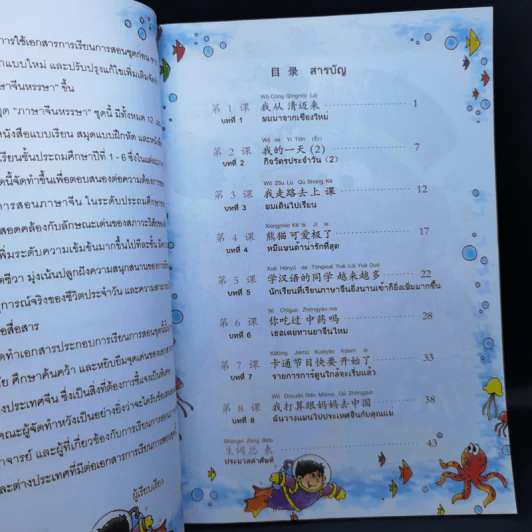 การใช้เอกสารการเรียนการสอนชุดก่อน
แบบใหม่ และปรับปรุงแก้ไขเพิ่มเติมจัด
"ภาษาจีนหรรษา" ขึ้น
ชุด "ภาษาจีนหรรษา" ชุดนี้ มีทั้งหมด 12
หนังสือแบบเรียน สมุดแบบฝึกหัด
เรียนชั้นประถมศึกษาปีที่ 1 - 6
ชุดนี้จัดทำขึ้นเพื่อตอบสนองต่อความต้องการ
การสอนภาษาจีน ในระดับประถมศึกษา
สอดคล้องกับลักษณะเด่นของสภาวะ
เพิ่มระดับความเข้มข้นมากขึ้นไปทีละขั้น
ชีวา มุ่งเน้นปลูกฝังความสนุกสนานของการ
การณ์จริงของชีวิตประจำวัน และความสามารถ
สื่อสาร
จัดทำเอกสารประกอบการเรียนการสอนชุดนี้
ศึกษาค้นคว้า และหยิบยืมจุดเด่นของ
ประเทศจีน ซึ่งเป็นสิ่งที่ต้องการชี้แจง
คณะผู้จัดทำหวังเป็นอย่างยิ่งว่าจะได้รับ
อาจารย์ และผู้ที่เกี่ยวข้องกับการเรียนการสอน
และต่างประเทศที่มีต่อเอกสารการเรียนการสอน
ผู้เรียบเรียง
目 录 สารบัญ
Wǒ Cóng Qīngmài Lái
第 1 课 我从 清迈来 1
บทที่ 1 ผมมาจากเชียงใหม่
Wǒ de Yì Tiān (Èr)
第 2 课 我的一天 (2) 7
บทที่ 2 กิจวัตรประจำวัน (2)
Wǒ Zǒu Lù Qù Shàng Kè
第 3 课 我走路去上 课 12
บทที่ 3 ผมเดินไปเรียน
Xióngmāo Kě'ài Jí le
第 4 课 熊猫 可爱极了 17
บทที่ 4 หมีแพนด้าน่ารักที่สุด
Xué Hànyǔ de Tóngxué Yuè Lái Yuè Duō
第 5 课 学汉语的同学 越来越多 22
บทที่ 5 นักเรียนที่เรียนภาษาจีนยิ่งนานเข้าก็ยิ่งเพิ่มมากขึ้น
Nǐ Chīguo Zhōngyào ma
第 6 课 你吃过 中药 吗 28
บทที่ 6 เธอเคยทานยาจีนไหม
Kǎtōng Jiémù Kuàiyào Kāishǐ le
第 7 课 卡通 节目 快要 开始了 33
บทที่ 7 รายการการ์ตูนใกล้จะเริ่มแล้ว
Wǒ Dǎsuàn Gēn Māma Qù Zhōngguó
第 8 课 我打算跟妈妈去中国 38
บทที่ 8 ฉันวางแผนไปประเทศจีนกับคุณแม่
Shēngcí Zǒng Biǎo
生词总 表 43
ประมวลคำศัพท์